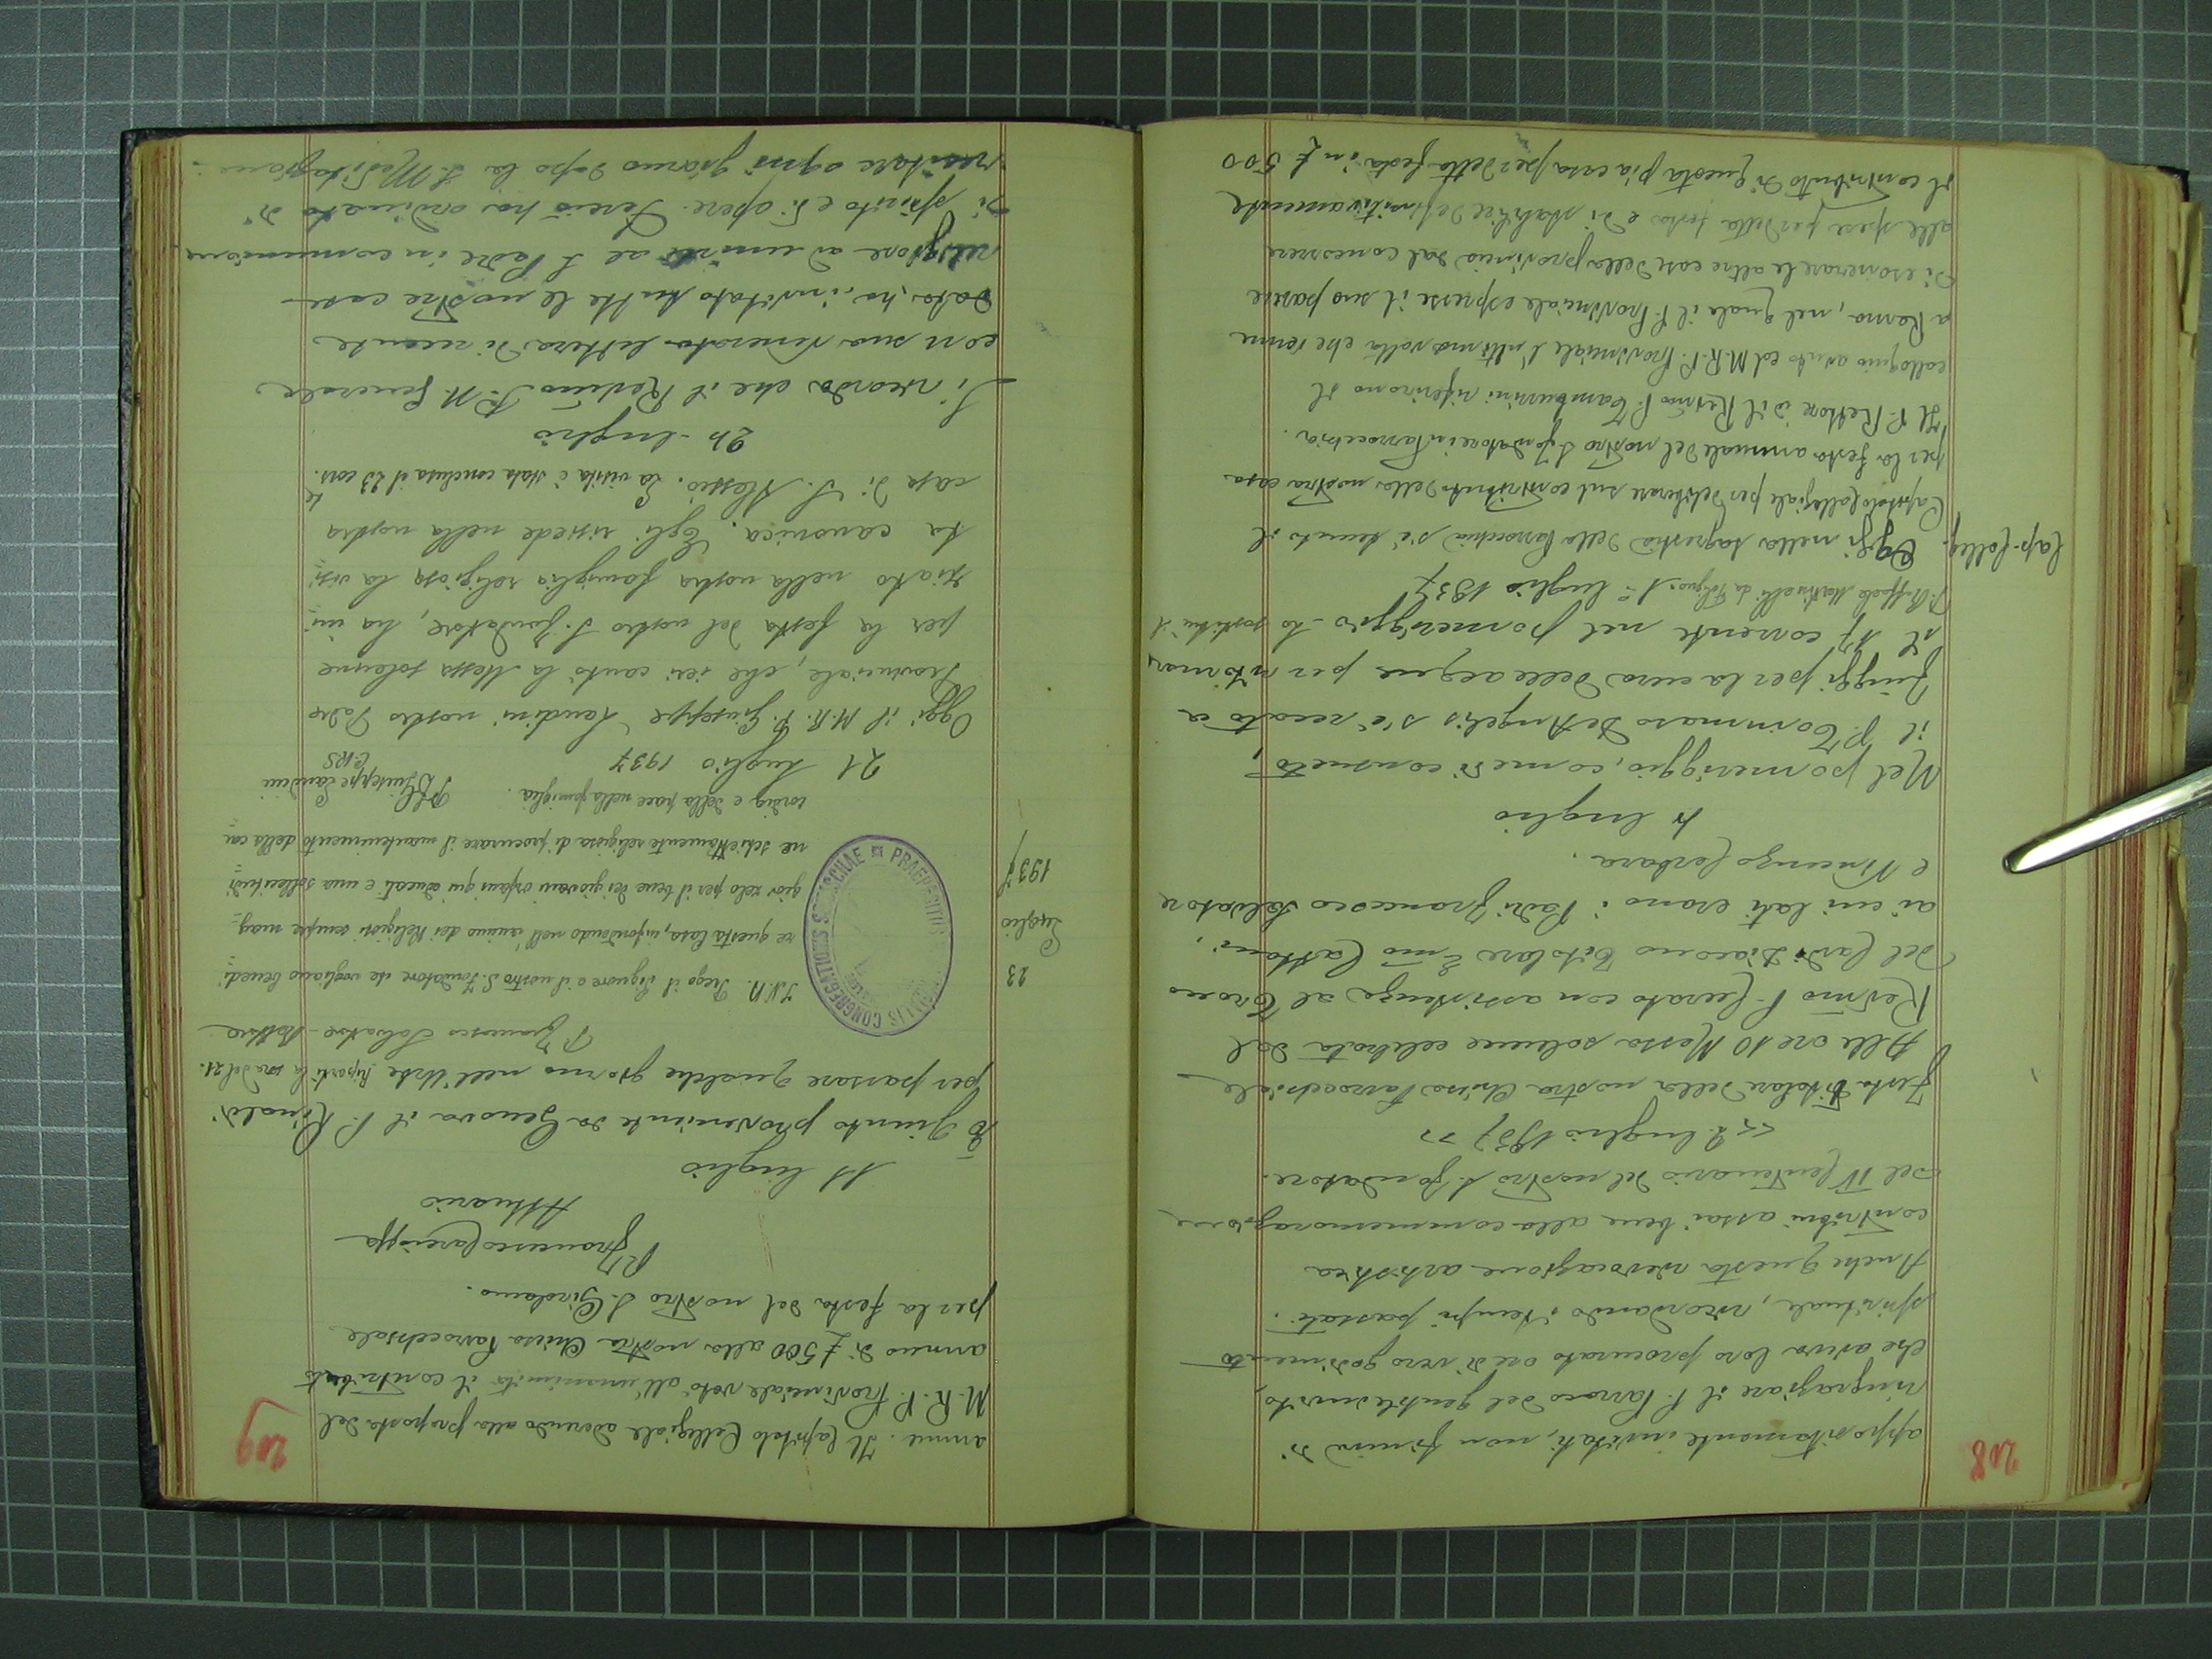 208
appositamente invitati, non finivano di
ringraziare il P. Parroco del gentile invito,
che aveva loro procurato ore di vero godimento
spirituale, ricordando i tempi passati.
Anche questa rievocazione artistica
contribuì assai bene alla commemorazione
del IV Centenario del nostro S. Fondatore.
<< 2 luglio 1937 >>
Festa Titolare della nostra Chiesa Parrocchiale
Alle ore 10 Messa solenne celebrata dal
Rev.mo P. Ceriato con assistenza al Trono
del Card. Diacono Titolare E.mo Cattani,
ai cui lati erano i Padri Francesco Salvatore
e Vincenzo Cerbara.
luglio
Nel pomeriggio, come di consueto,
il P. Tommaso De Angelis s'è recato a
Fiuggi per la cura delle acque per ritornare
il 17 corrente nel pomeriggio - lo sostituì il
P. Raffaele Martinelli da Foligno. 1° luglio 1937
Cap. Colleg.
Oggi nella sagrestia della Parrocchia s'è tenuto il
Capitolo Collegiale per deliberare sul contributo della nostra casa
per la festa annuale del nostro S. Fondatore in Parrocchia.
Il P. Rettore ed il Rev.mo P. Tamburrini riferirono il
colloquio avuto col M.R.P. Provinciale l'ultima volta che venne
a Roma, nel quale il P. Provinciale espresse il suo parere
di esonerare le altre case della provincia dal concorrere
alle spese per detta festa e di stabilire definitivamente
il contributo di questa pia casa per detta festa in £ 500
209
annue. Il Capitolo Collegiale aderendo alla proposta del
M.R.P. Provinciale votò all'unanimità il contributo
annuo di £ 500 alla nostra Chiesa Parrocchiale
per la festa del nostro S. Girolamo.
P. Francesco Careniga
Attuario
11 luglio
È giunto proveniente da Genova il P. Rinaldi
per passare qualche giorno nell'Urbe Riparti la sera del 21.
P. Francesco Salvatore - Rettore
23
Luglio
1937
I.N.D. Prego il Signore e il nostro S. Fondatore che vogliano benedi-
re questa Casa, infondendo nell'animo dei Religiosi sempre mag-
gior zelo per il bene dei giovani orfani qui educati e una sollecitudi-
ne schiettamente religiosa di procurare il mantenimento della con-
cordia e della pace nella famiglia. P. Giuseppe Landini
CRS
PRAEPOSITUS CONGREGATIONIS SOMASCHAE
21 luglio 1937
Oggi il M.R.P. Giuseppe Landini nostro Padre
Provinciale, che ieri cantò la Messa solenne
per la festa del nostro S. Fondatore, ha ini-
ziato nella nostra famiglia religiosa la visi-
ta canonica. Egli risiede nella nostra
casa di S. Alessio. La visita è stata conclusa il 23 corr.te
24 luglio
Si ricorda che il Rev.mo P. N. Generale
con sua venerata lettera di recente
data, ha invitato tutte le nostre case
religiose ad unirsi al S. Padre in comunione
di spirito e di opere. Perciò ha ordinato di
recitare ogni giorno dopo la S. Meditazione: